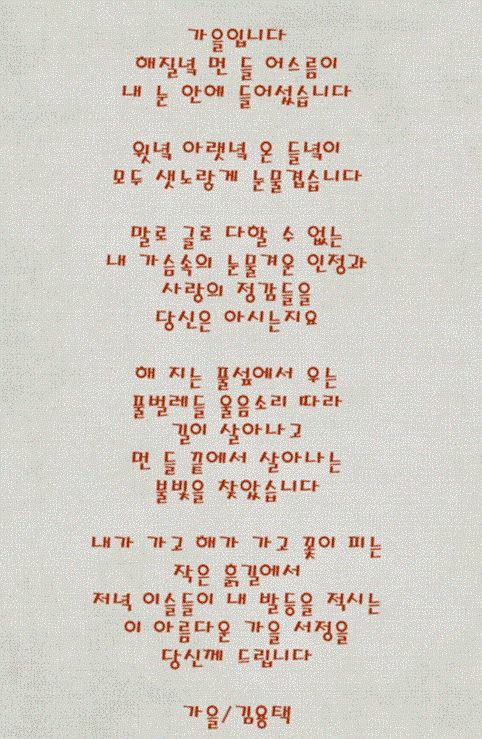 가을입니다
해질녘 먼 들 어스름이
내 눈 안에 들어섰습니다
윗녘 아랫녘 온 들녘이
모두 샛노랗게 눈물겹습니다
말로 글로 다할 수 없는
내 가슴속의 눈물겨운 인정과
사랑의 정감들을
당신은 아시는지요
해 지는 풀섶에서 우는
풀벌레들 울음소리 따라
길이 살아나고
먼 들 끝에서 살아나는
불빛을 찾았습니다
내가 가고 해가 가고 꽃이 피는
작은 흙길에서
저녁 이슬들이 내 발등을 적시는
이 아름다운 가을 서정을
당신께 드립니다
가을/김용택